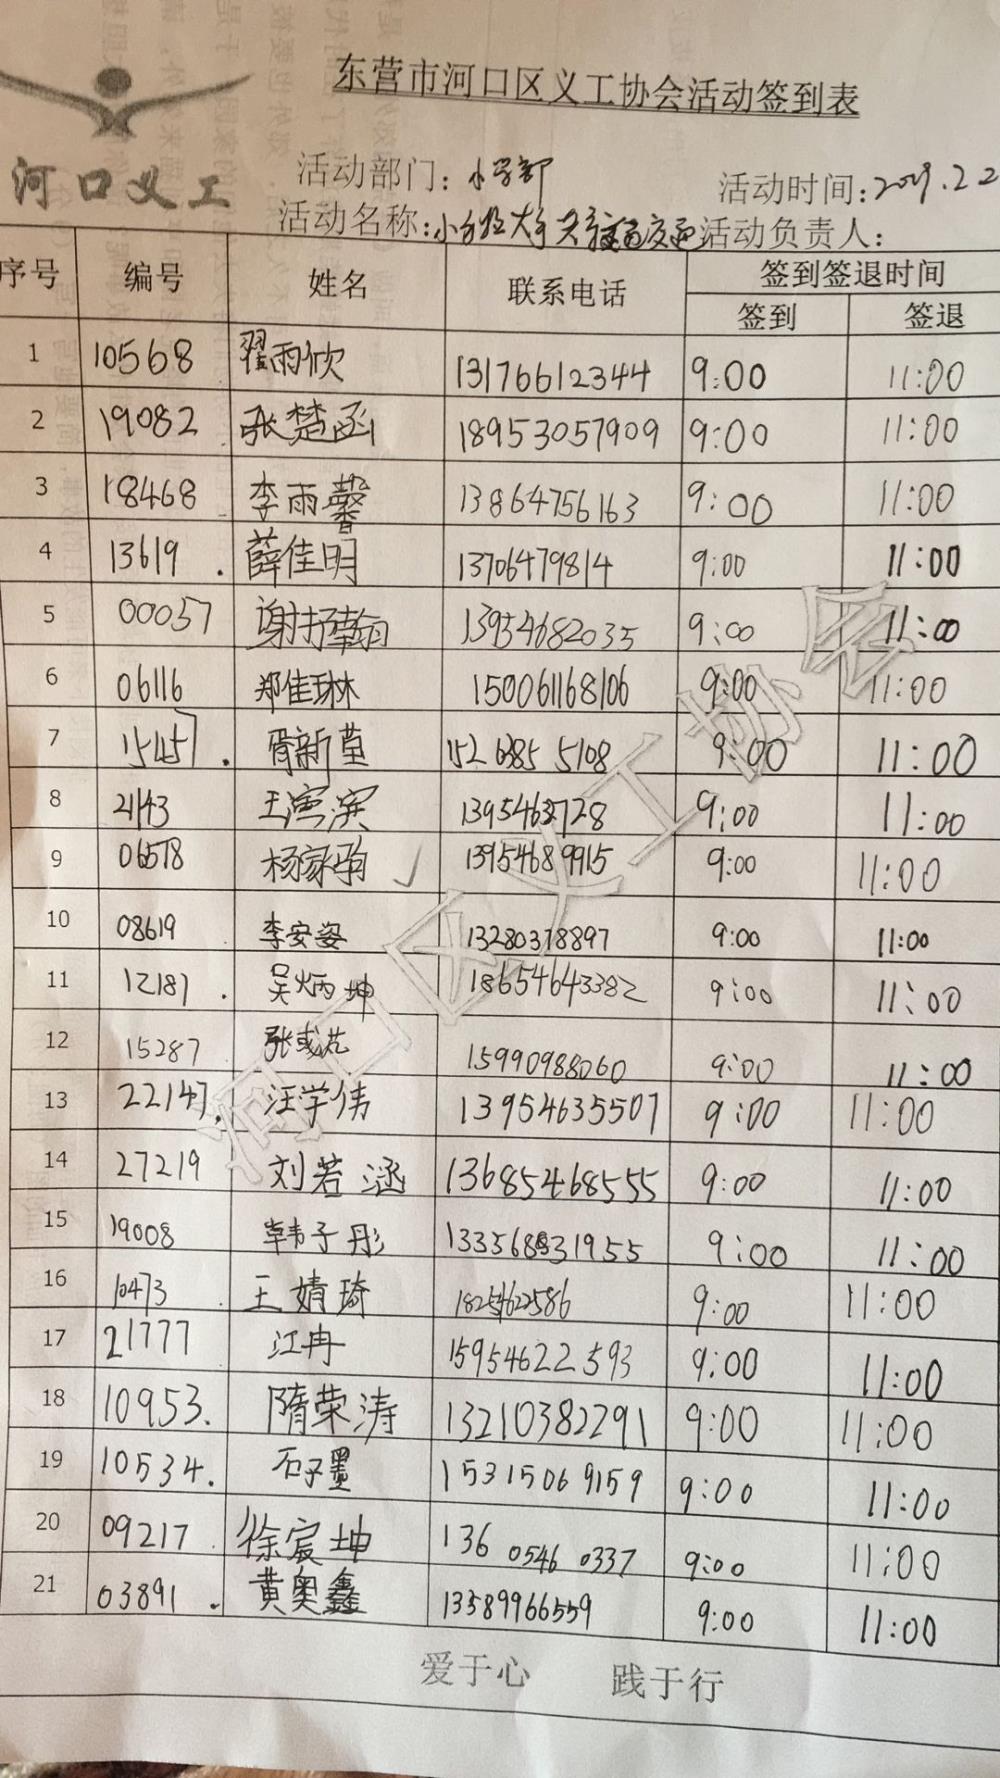 东营市河口区义工协会活动签到表
河口义工
活动部门：小学部 活动时间：2019.2.2
活动名称：小手拉大手 活动负责人：
序号 编号 姓名 联系电话 签到签退时间
签到 签退
1 10568 翟雨欣 13176612344 9:00 11:00
2 19082 张楚函 18953057909 9:00 11:00
3 18468 李雨馨 13864756163 9:00 11:00
4 13619 . 薛佳明 13706479814 9:00 11:00
5 00037 谢扬翰 13954682035 9:00 11:00
6 06116 郑佳琳 150061168106 9:00 11:00
7 15457 . 胥新莹 152 6385 5108 9:00 11:00
8 2143 王 滨 9:00 11:00
9 06578 杨家驹 13954689915 9:00 11:00
10 08619 李安姿 13280378897 9:00 11:00
11 12187 . 吴炳坤 18654643382 9:00 11:00
12 15287 张彧 15990988060 9:00 11:00
13 22147. 汪学伟 13954635507 9:00 11:00
14 27219 刘若涵 13685468555 9:00 11:00
15 19008 韩子彤 9:00 11:00
16 10473 王婧琦 9:00 11:00
17 21777 江冉 15954622593 9:00 11:00
18 10953. 隋荣涛 13210382291 9:00 11:00
19 10534. 石子墨 15315069159 9:00 11:00
20 09217 徐宸坤 136 0546 0337 9:00 11:00
21 03891 . 黄奥鑫 13589966559 9:00 11:00
河口区义工协会
爱于心 践于行